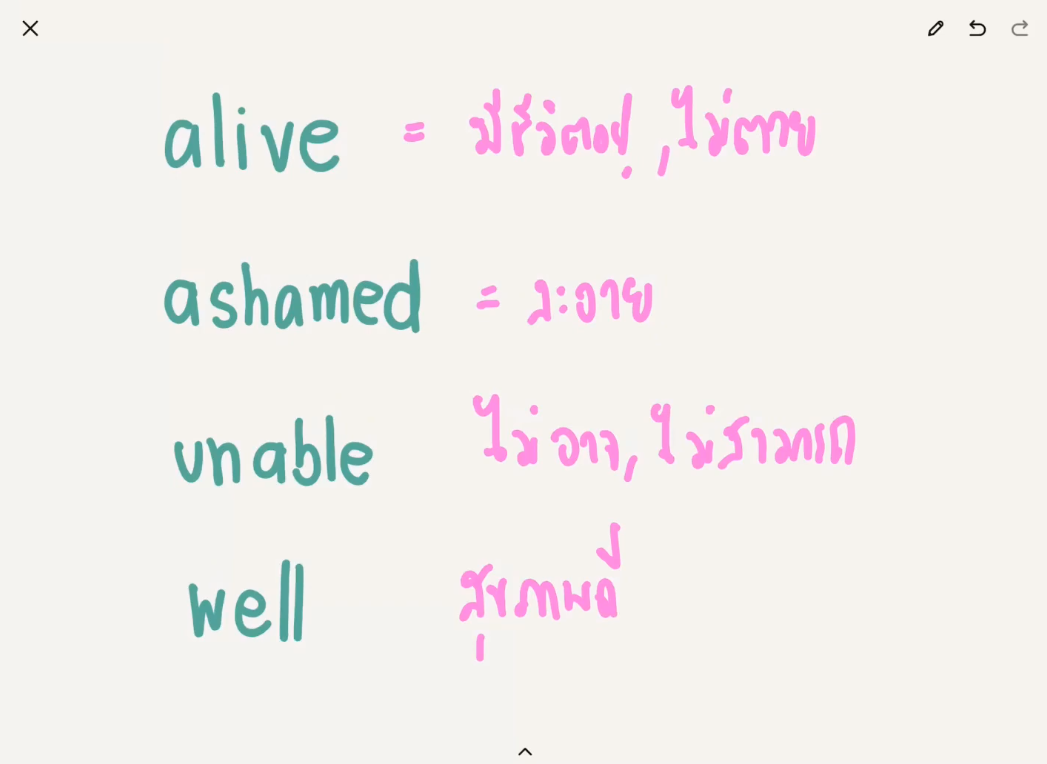 alive = มีชีวิตอยู่, ไม่ตาย
ashamed = ละอาย
unable ไม่อาจ, ไม่สามารถ
well สุขภาพดี